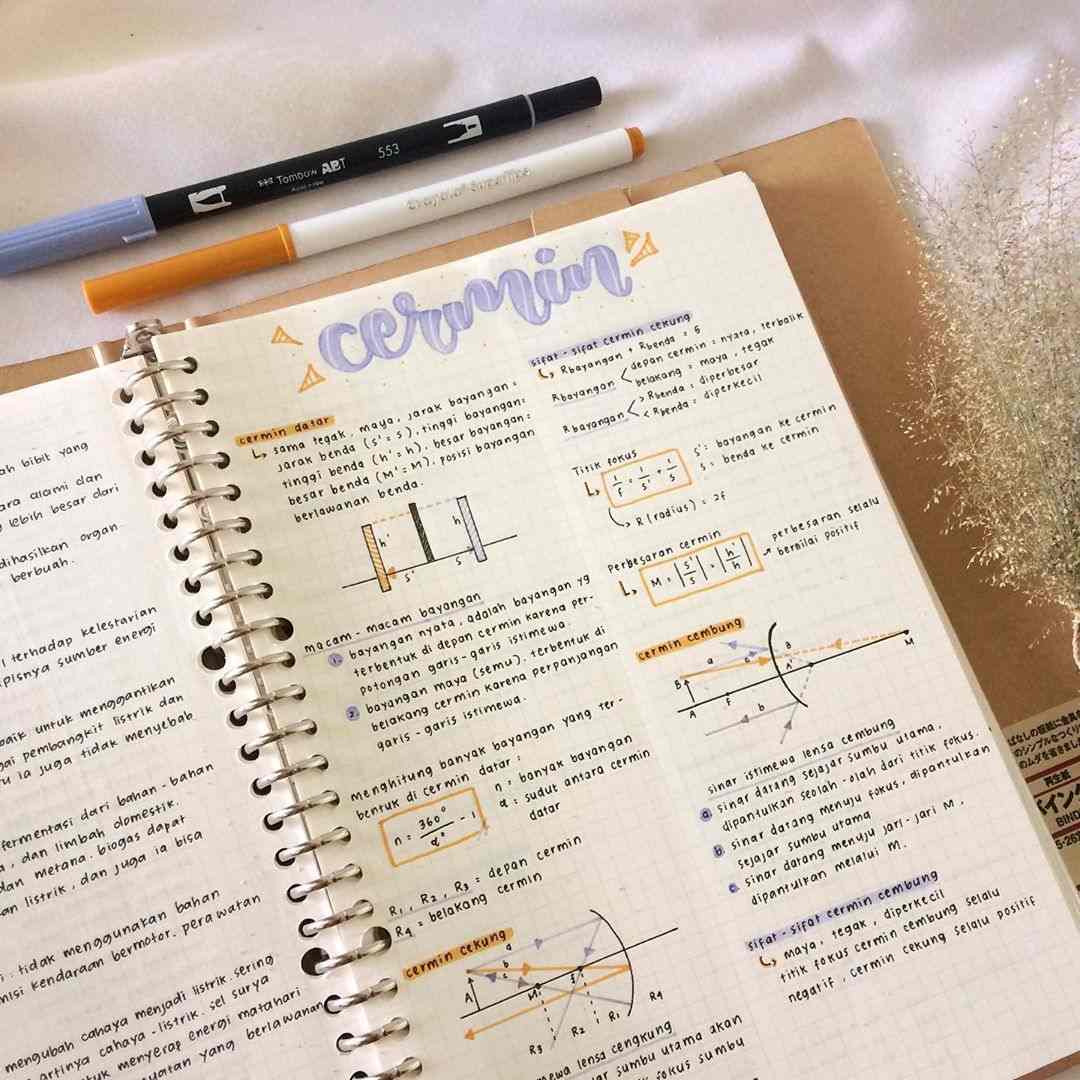 Tombow ABT 553
cermin
ah bibit yang
ara alami dan
lebih besar dari
dihasilkan organ
berbuah.
l terhadap kelestarian
ipisnya sumber energi
baik untuk menggantikan
gai pembangkit listrik dan
u ia juga tidak menyebab.
fermentasi dari bahan-bahan
, dan limbah domestik.
dan metana. biogas dapat
an listrik, dan juga ia bisa
i. tidak menggunakan bahan
misi kendaraan bermotor. perawatan
mengubah cahaya menjadi listrik. sering
artinya cahaya-listrik. sel surya
tuk menyerap energi matahari
uatan yang berlawanan
cermin datar
↳ sama tegak, maya, jarak bayangan =
jarak benda (s' = s), tinggi bayangan =
tinggi benda (h' = h), besar bayangan =
besar benda (M' = M), posisi bayangan
berlawanan benda.
h' h
s' s
macam-macam bayangan
1. bayangan nyata, adalah bayangan yg
terbentuk di depan cermin karena per-
potongan garis-garis istimewa.
2. bayangan maya (semu). terbentuk di
belakang cermin karena perpanjangan
garis-garis istimewa.
menghitung banyak bayangan yang ter-
bentuk di cermin datar :
n = 360°/α° - 1
n = banyak bayangan
α = sudut antara cermin
datar
R1, R2, R3 = depan cermin
R4 = belakang cermin
cermin cekung
a
b
A M f
R3 R2 R1 R4
mewa lensa cengkung
ar sumbu utama akan
k fokus sumbu
sifat-sifat cermin cekung
↳ Rbayangan + Rbenda = 5
Rbayangan < depan cermin : nyata, terbalik
belakang = maya, tegak
Rbayangan < > Rbenda = diperbesar
< Rbenda = diperkecil
Titik fokus
↳ 1/f = 1/s' + 1/s
s' = bayangan ke cermin
s = benda ke cermin
R (radius) = 2f
perbesaran cermin
↳ M = |s'/s| = |h'/h| → perbesaran selalu
bernilai positif
cermin cembung
a
B A' M
A F
b
sinar istimewa lensa cembung
a. sinar darang sejajar sumbu utama,
dipantulkan seolah-olah dari titik fokus.
b. sinar datang menuju fokus, dipantulkan
sejajar sumbu utama
c. sinar datang menuju jari-jari M,
dipantulkan melalui M.
sifat-sifat cermin cembung
↳ maya, tegak, diperkecil
titik fokus cermin cembung selalu
negatif, cermin cekung selalu positif
再生紙
BIND